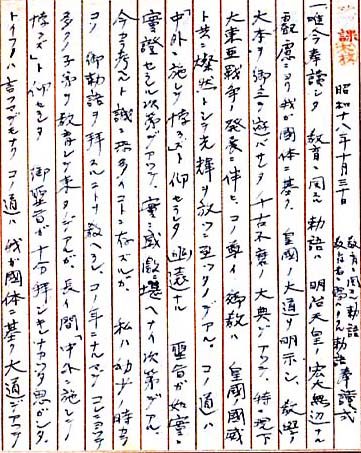 昭和十八年十月三十日
教育ニ関スル勅語
奉讀式
一、唯今奉讀シタ 教育ニ関スル 勅語ハ 明治天皇ノ宏大無辺ナル
叡慮ニヨリ我ガ國体ニ基ク 皇國ノ大道ヲ明示シ 教學ノ
大本ヲ御立テ遊バサレタ千古不磨ノ大典デアッテ 特ニ現下
大東亜戦争ノ発展ニ伴ヒ、コノ尊イ 御教ハ 皇國ノ國威
ト共ニ燦然トシテ光輝ヲ放ツニ至ッタノデアル。コノ道ハ
中外ニ施シテ悖ラズト仰セラレタ 幽遠ナル 聖旨ガ如實ニ
實證セラレル次第デアッテ、寔ニ感激ニ堪ヘナイ次第デアル。
今カラ考ヘルト誠ニ恐多イコトニ存ズルガ 私ハ幼少ノ時カラ
コノ 御勅語ヲ拝スルニトリ教ヘラレ、コノ年ニナルマデ コレヲ以テ
多クノ子弟ヲ教育シテ来タノデアルガ、長イ間「中外ニ施シテ
悖ラズ」ト仰セラレタ 御聖旨ガ十分拝シキレナカッタ思ガシタ。
トイフノハ言フマデモナク コノ道ハ 我ガ國体ニ基ク大道デアッテ